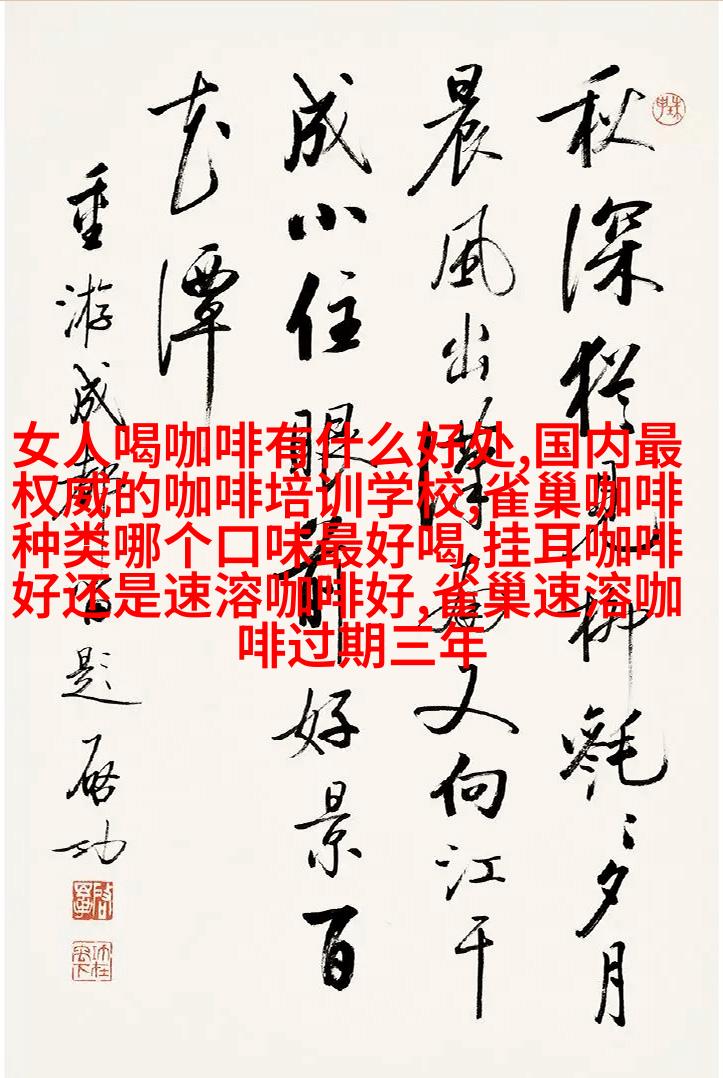 秋深猶見柳毿〻夕月
晨風出薄寒又向江干
成小住眼前好景百
花潭
重游成都留題 啓功
女人喝咖啡有什么好处,国内最
权威的咖啡培训学校,雀巢咖啡
种类哪个口味最好喝,挂耳咖啡
好还是速溶咖啡好,雀巢速溶咖
啡过期三年